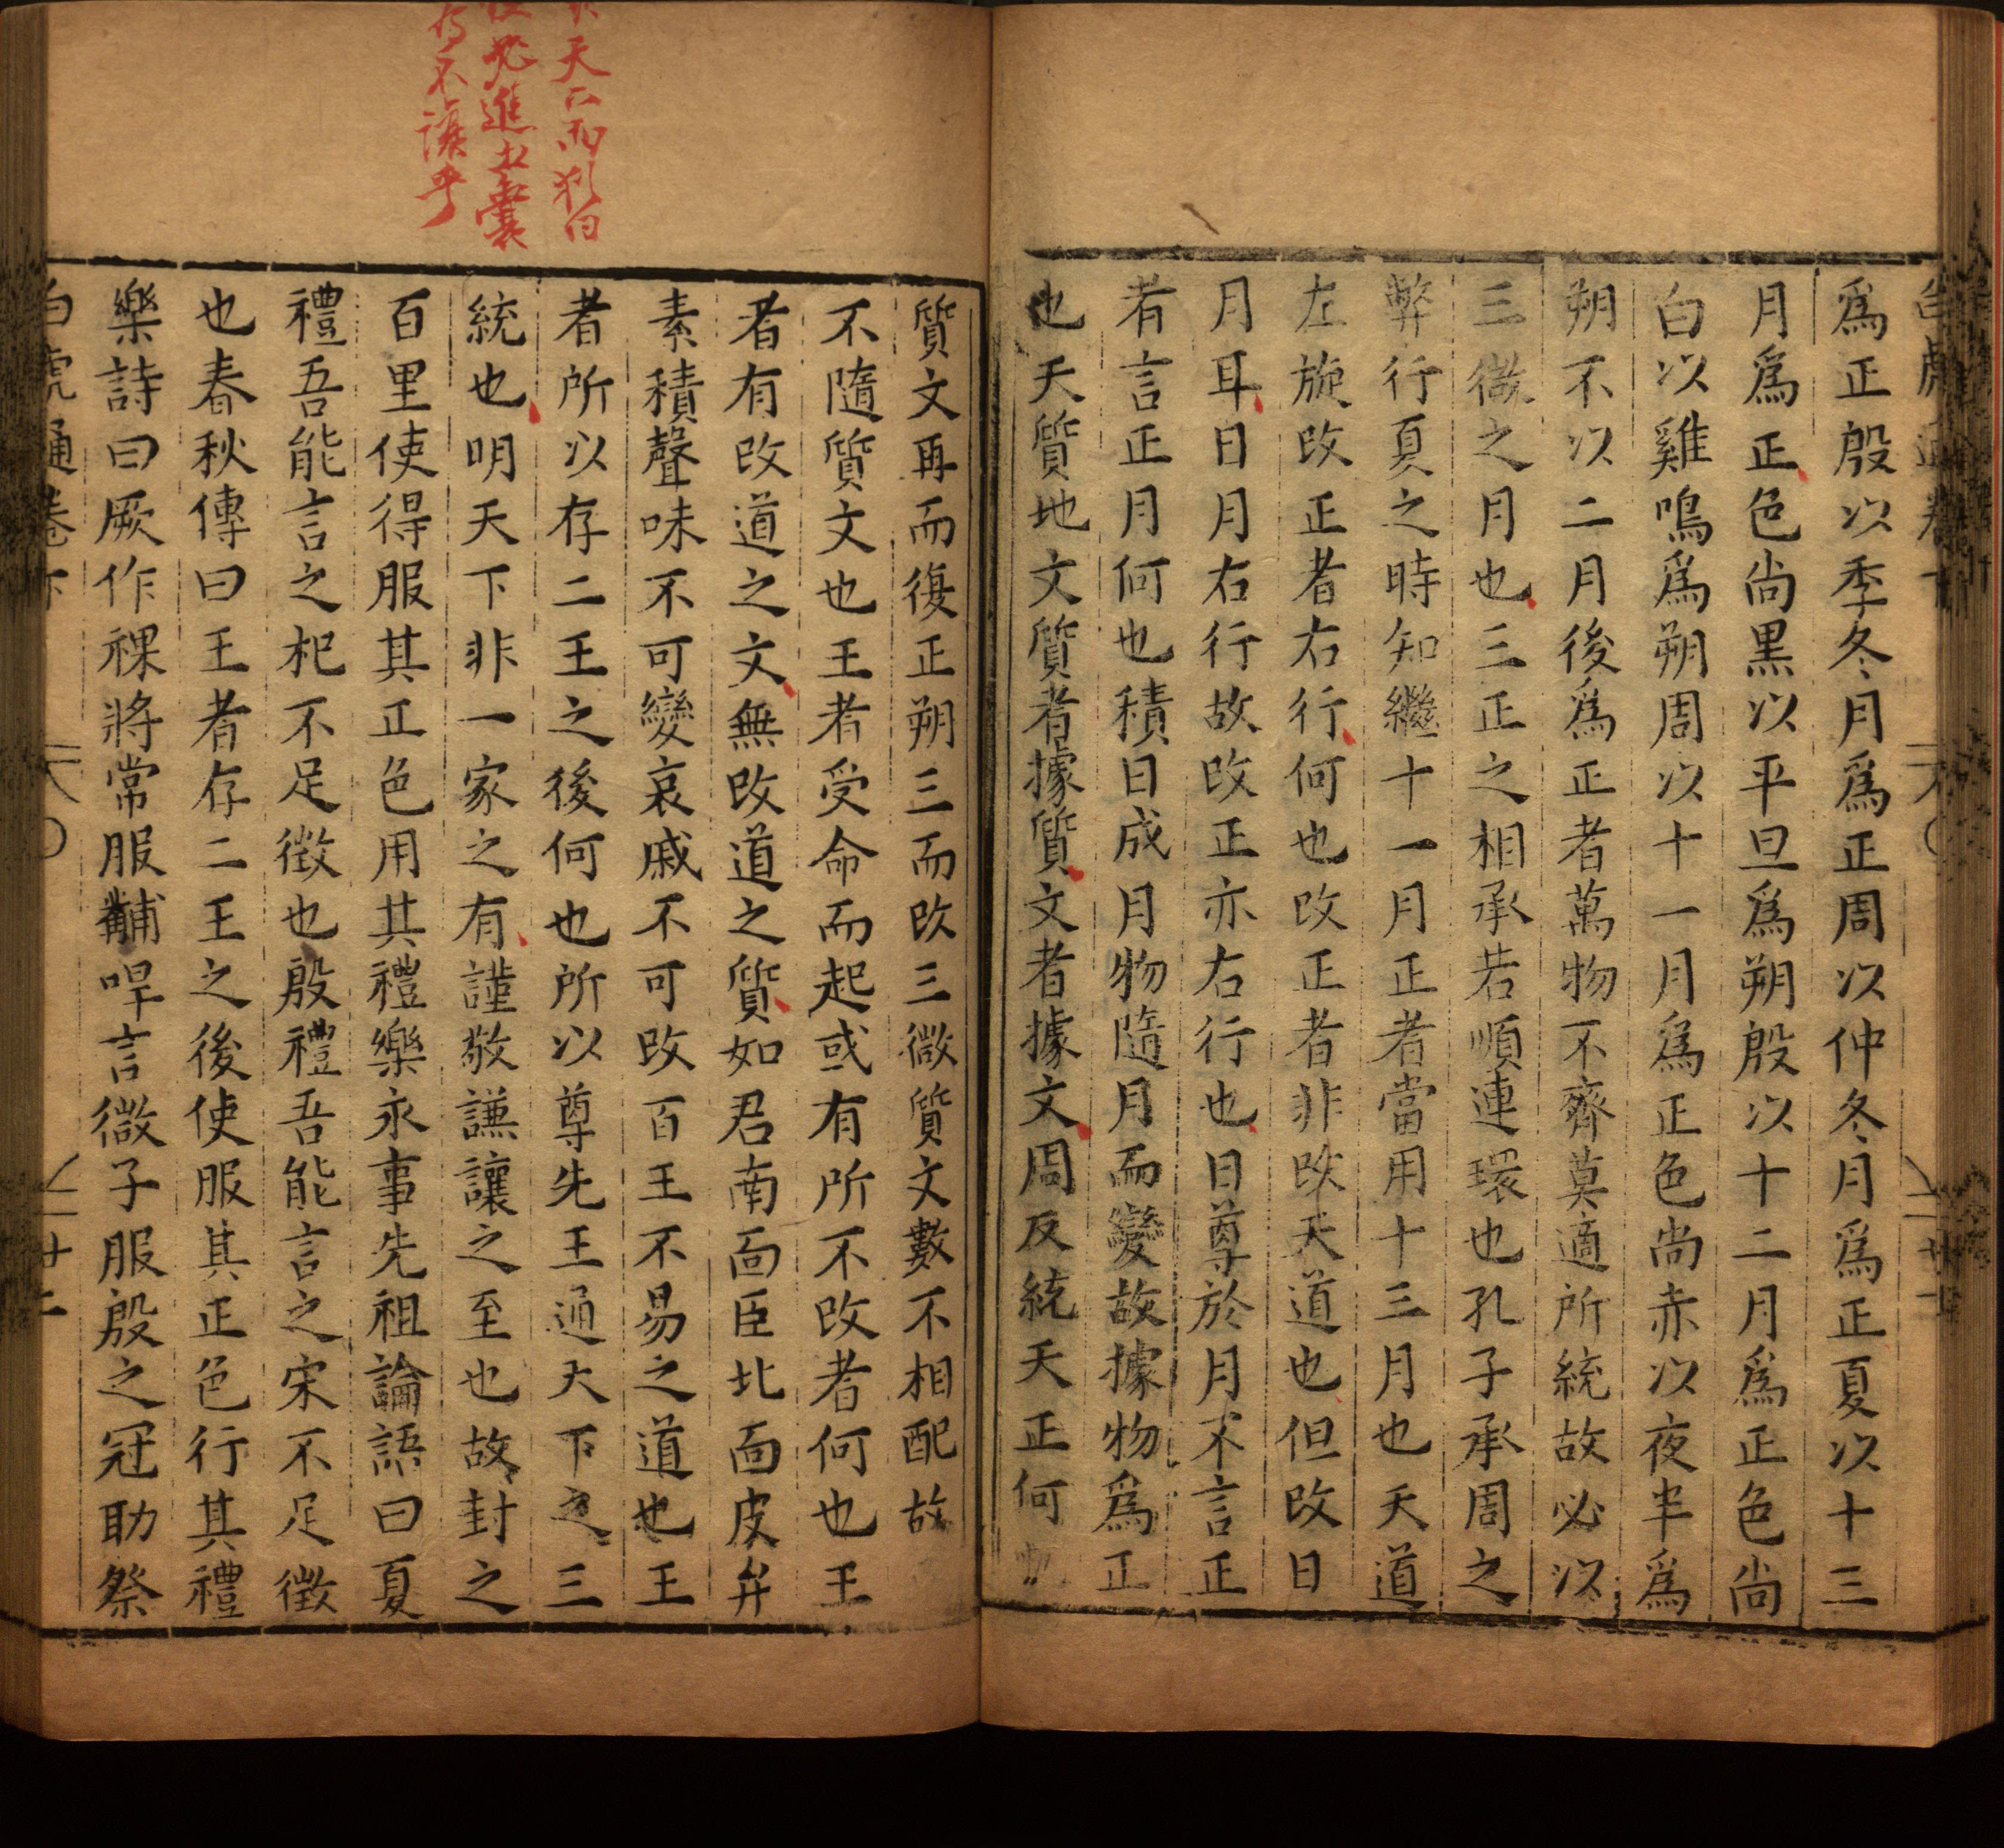 爲正殷以季冬月爲正周以仲冬月爲正夏以十三
月爲正色尚黒以平旦爲朔殷以十二月爲正色尚
白以雞鳴爲朔周以十一月爲正色尚赤以夜半爲
朔不以二月後爲正者萬物不齊莫適所統故必以
三微之月也三正之相承若順連環也孔子承周之
弊行夏之時知繼十一月正者當用十三月也天道
左旋改正者右行何也改正者非改天道也但改日
月耳日月右行故改正亦右行也日尊於月不言正
者言正月何也積日成月物隨月而變故據物爲正
也天質地文質者據質文者據文周反統天正何也
質文再而復正朔三而改三微質文數不相配故
不隨質文也王者受命而起或有所不改者何也王
者有改道之文無改道之質如君南面臣北面皮弁
素積聲味不可變哀戚不可改百王不易之道也王
者所以存二王之後何也所以尊先王通天下之三
統也明天下非一家之有謹敬謙讓之至也故封之
百里使得服其正色用其禮樂永事先祖論語曰夏
禮吾能言之杞不足徵也殷禮吾能言之宋不足徵
也春秋傳曰王者存二王之後使服其正色行其禮
樂詩曰厥作祼將常服黼哻言微子服殷之冠助祭
白虎通卷下